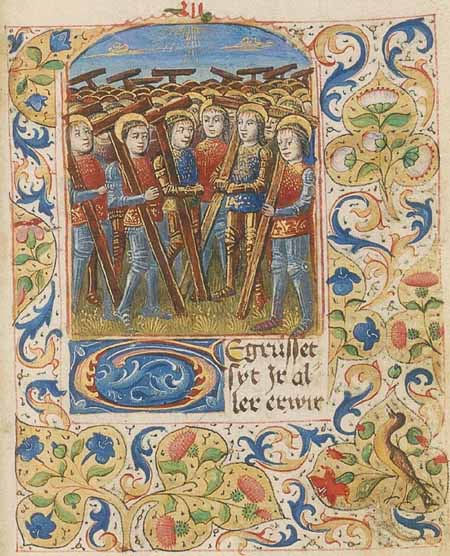 Egrusset
syt ir al
ler erwir